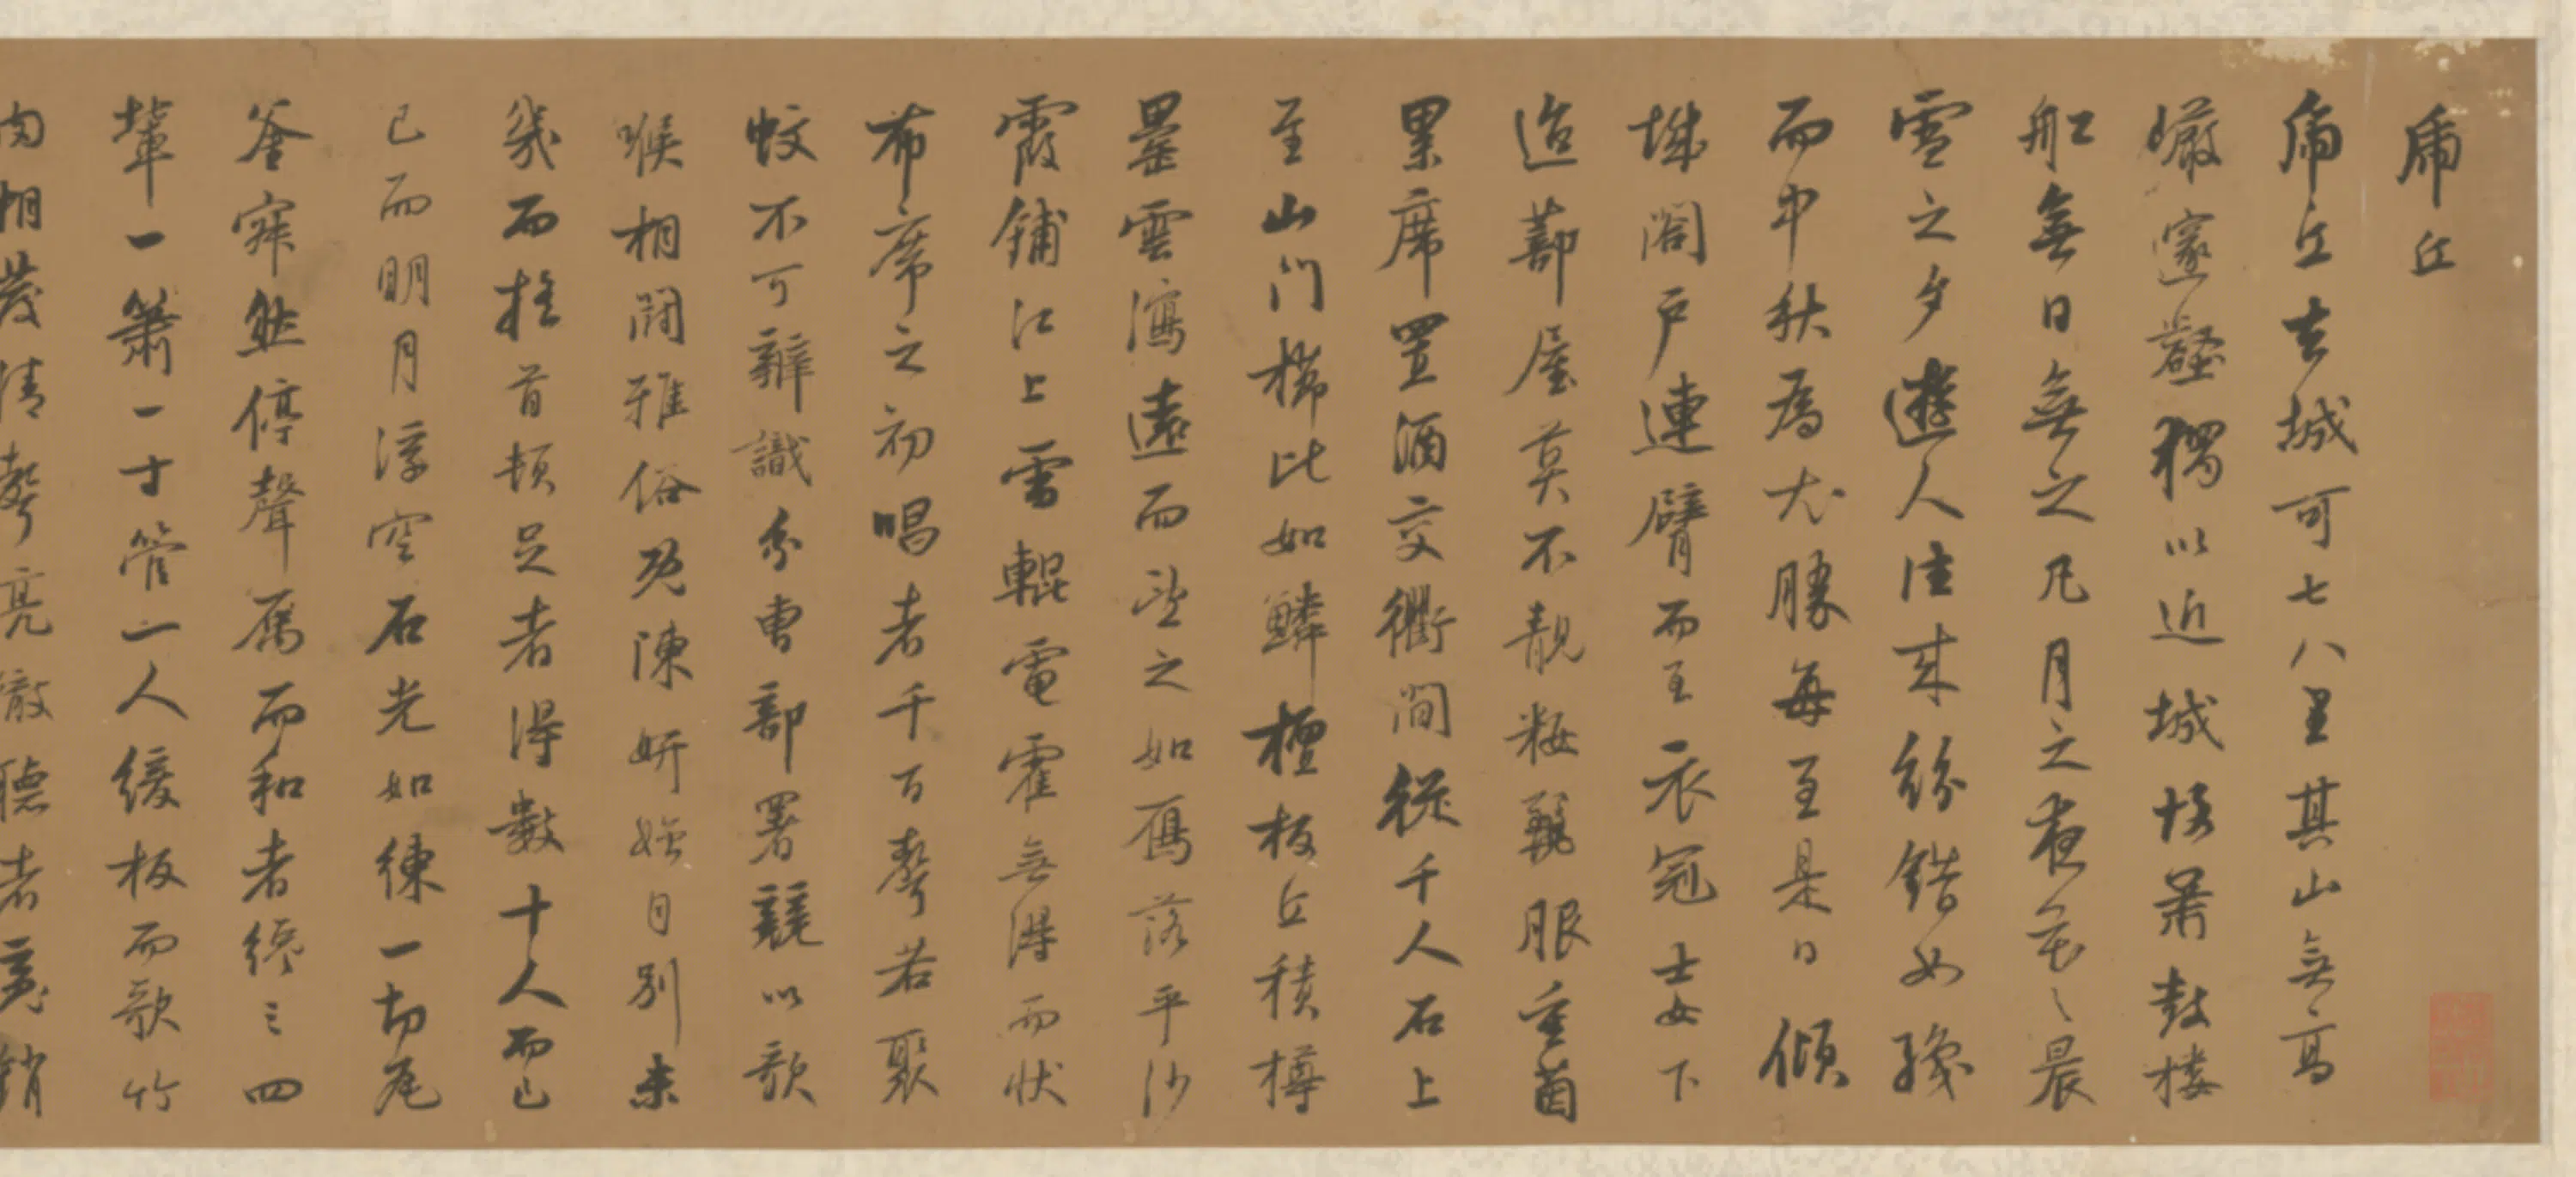 虎丘
虎丘去城可七八里其山無高
巖邃壑獨以近城故簫鼓樓
船無日無之凡月之夜花之晨
雪之夕遊人往來紛錯如織
而中秋為尤勝每至是日傾
城闔戶連臂而至衣冠士女下
迨蔀屋莫不靚粧麗服重茵
累席置酒交衢間從千人石上
至山門櫛比如鱗檀板丘積樽
罍雲瀉遠而望之如雁落平沙
霞鋪江上雷輥電霍無得而狀
布席之初唱者千百聲若聚
蚊不可辨識分曹部署競以歌
喉相鬪雅俗既陳妍媸自別未
幾而搖首頓足者得數十人而已
已而明月浮空石光如練一切瓦
釜寂然停聲屬而和者纔三四
輩一簫一寸管一人緩板而歌竹
肉相發清聲亮徹聽者魂銷